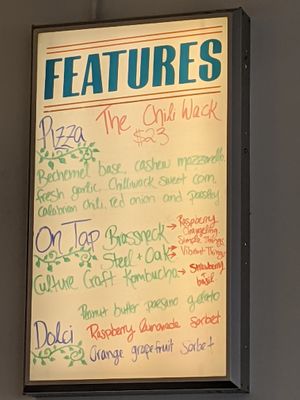 FEATURES
Pizza
The Chili Wack
$23
Bechemel base, cashew mozzarella,
fresh garlic, Chilliwack sweet corn,
calabrian chili, red onion and parsley
On Tap
Brassneck → Raspberry
Changeling
Simple Things
Steel + Oak → Vibrant Things
Culture Craft Kombucha → Strawberry
basil
Dolci
Peanut butter paesano gelato
Raspberry lemonade sorbet
Orange grapefruit sorbet